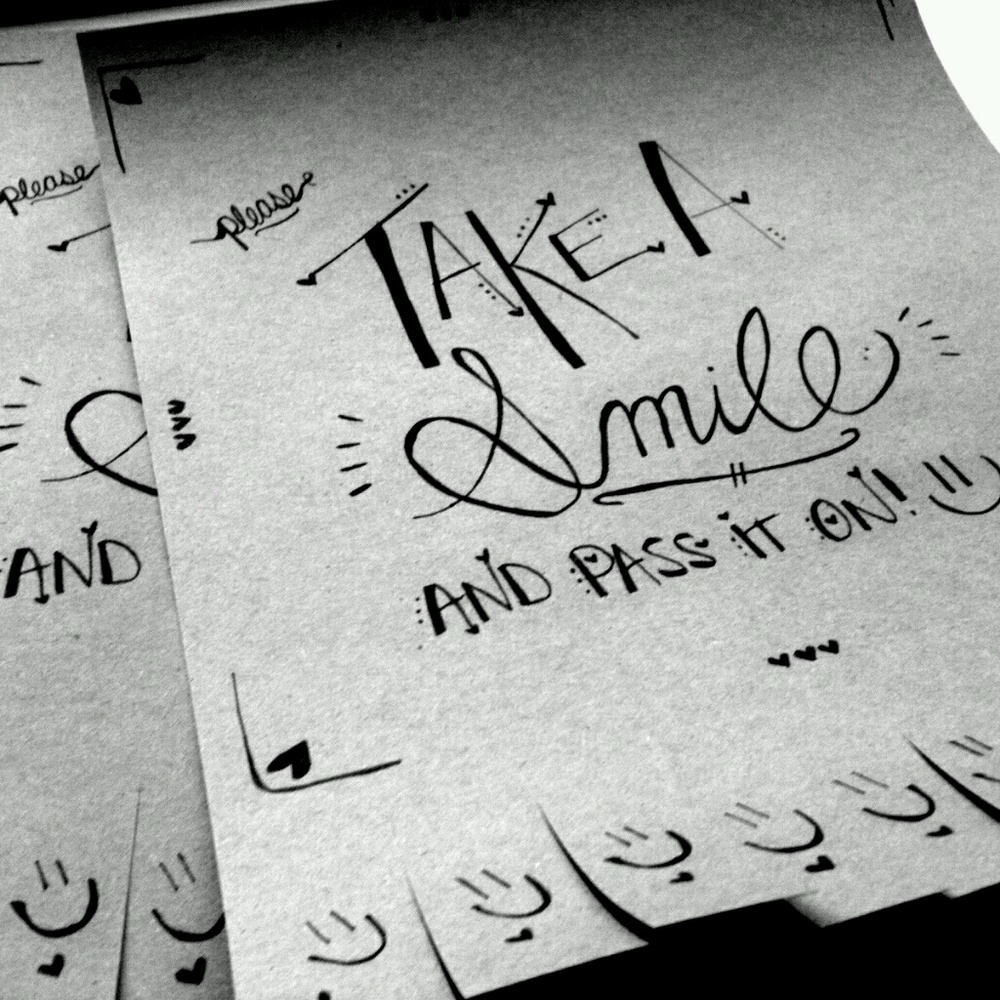 please
please
TAKE A
Smile
AND PASS IT ON!
AND